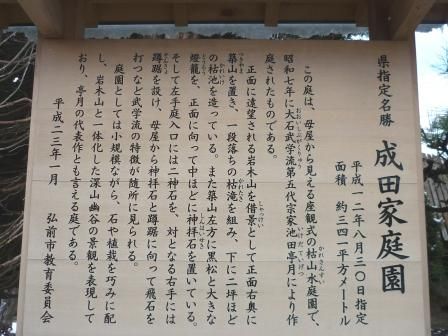 県指定名勝 成田家庭園
平成一二年八月三〇日指定
面積 約三四一平方メートル
この庭は、母屋から見える座観式の枯山水庭園で、
昭和七年に大石武学流第五代宗家池田亭月により作
庭されたものである。
正面に遠望される岩木山を借景として正面右奥に
築山を置き、一段落ちの枯滝を組み、下に二坪ほど
の枯池を造っている。また築山左方に黒松と大きな
燈籠を、正面に向って中ほどに神拝石を置いている。
そして左手庭入口には二神石を、対となる右手には
蹲踞を設け、母屋から神拝石と蹲踞に向って飛石を
打つなど武学流の特徴が随所に見られる。
庭園としては小規模ながら、石や植栽を巧みに配
し、岩木山と一体化した深山幽谷の景観を表現して
おり、亭月の代表作とも言える庭である。
平成二三年一月
弘前市教育委員会